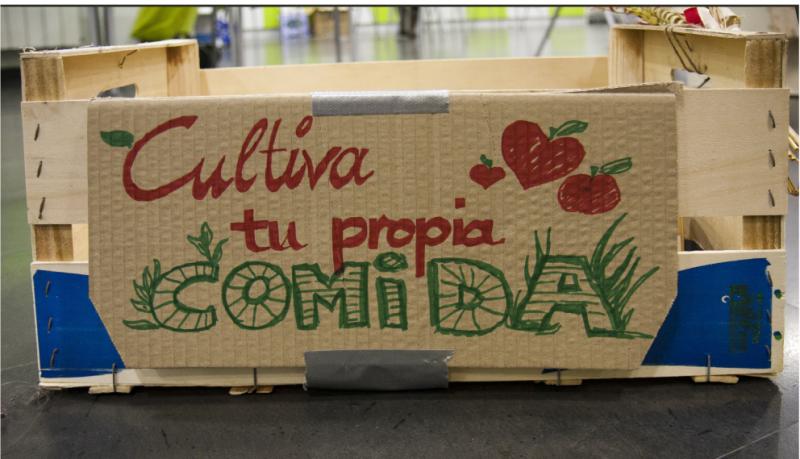 Cultiva
tu propia
COMiDA